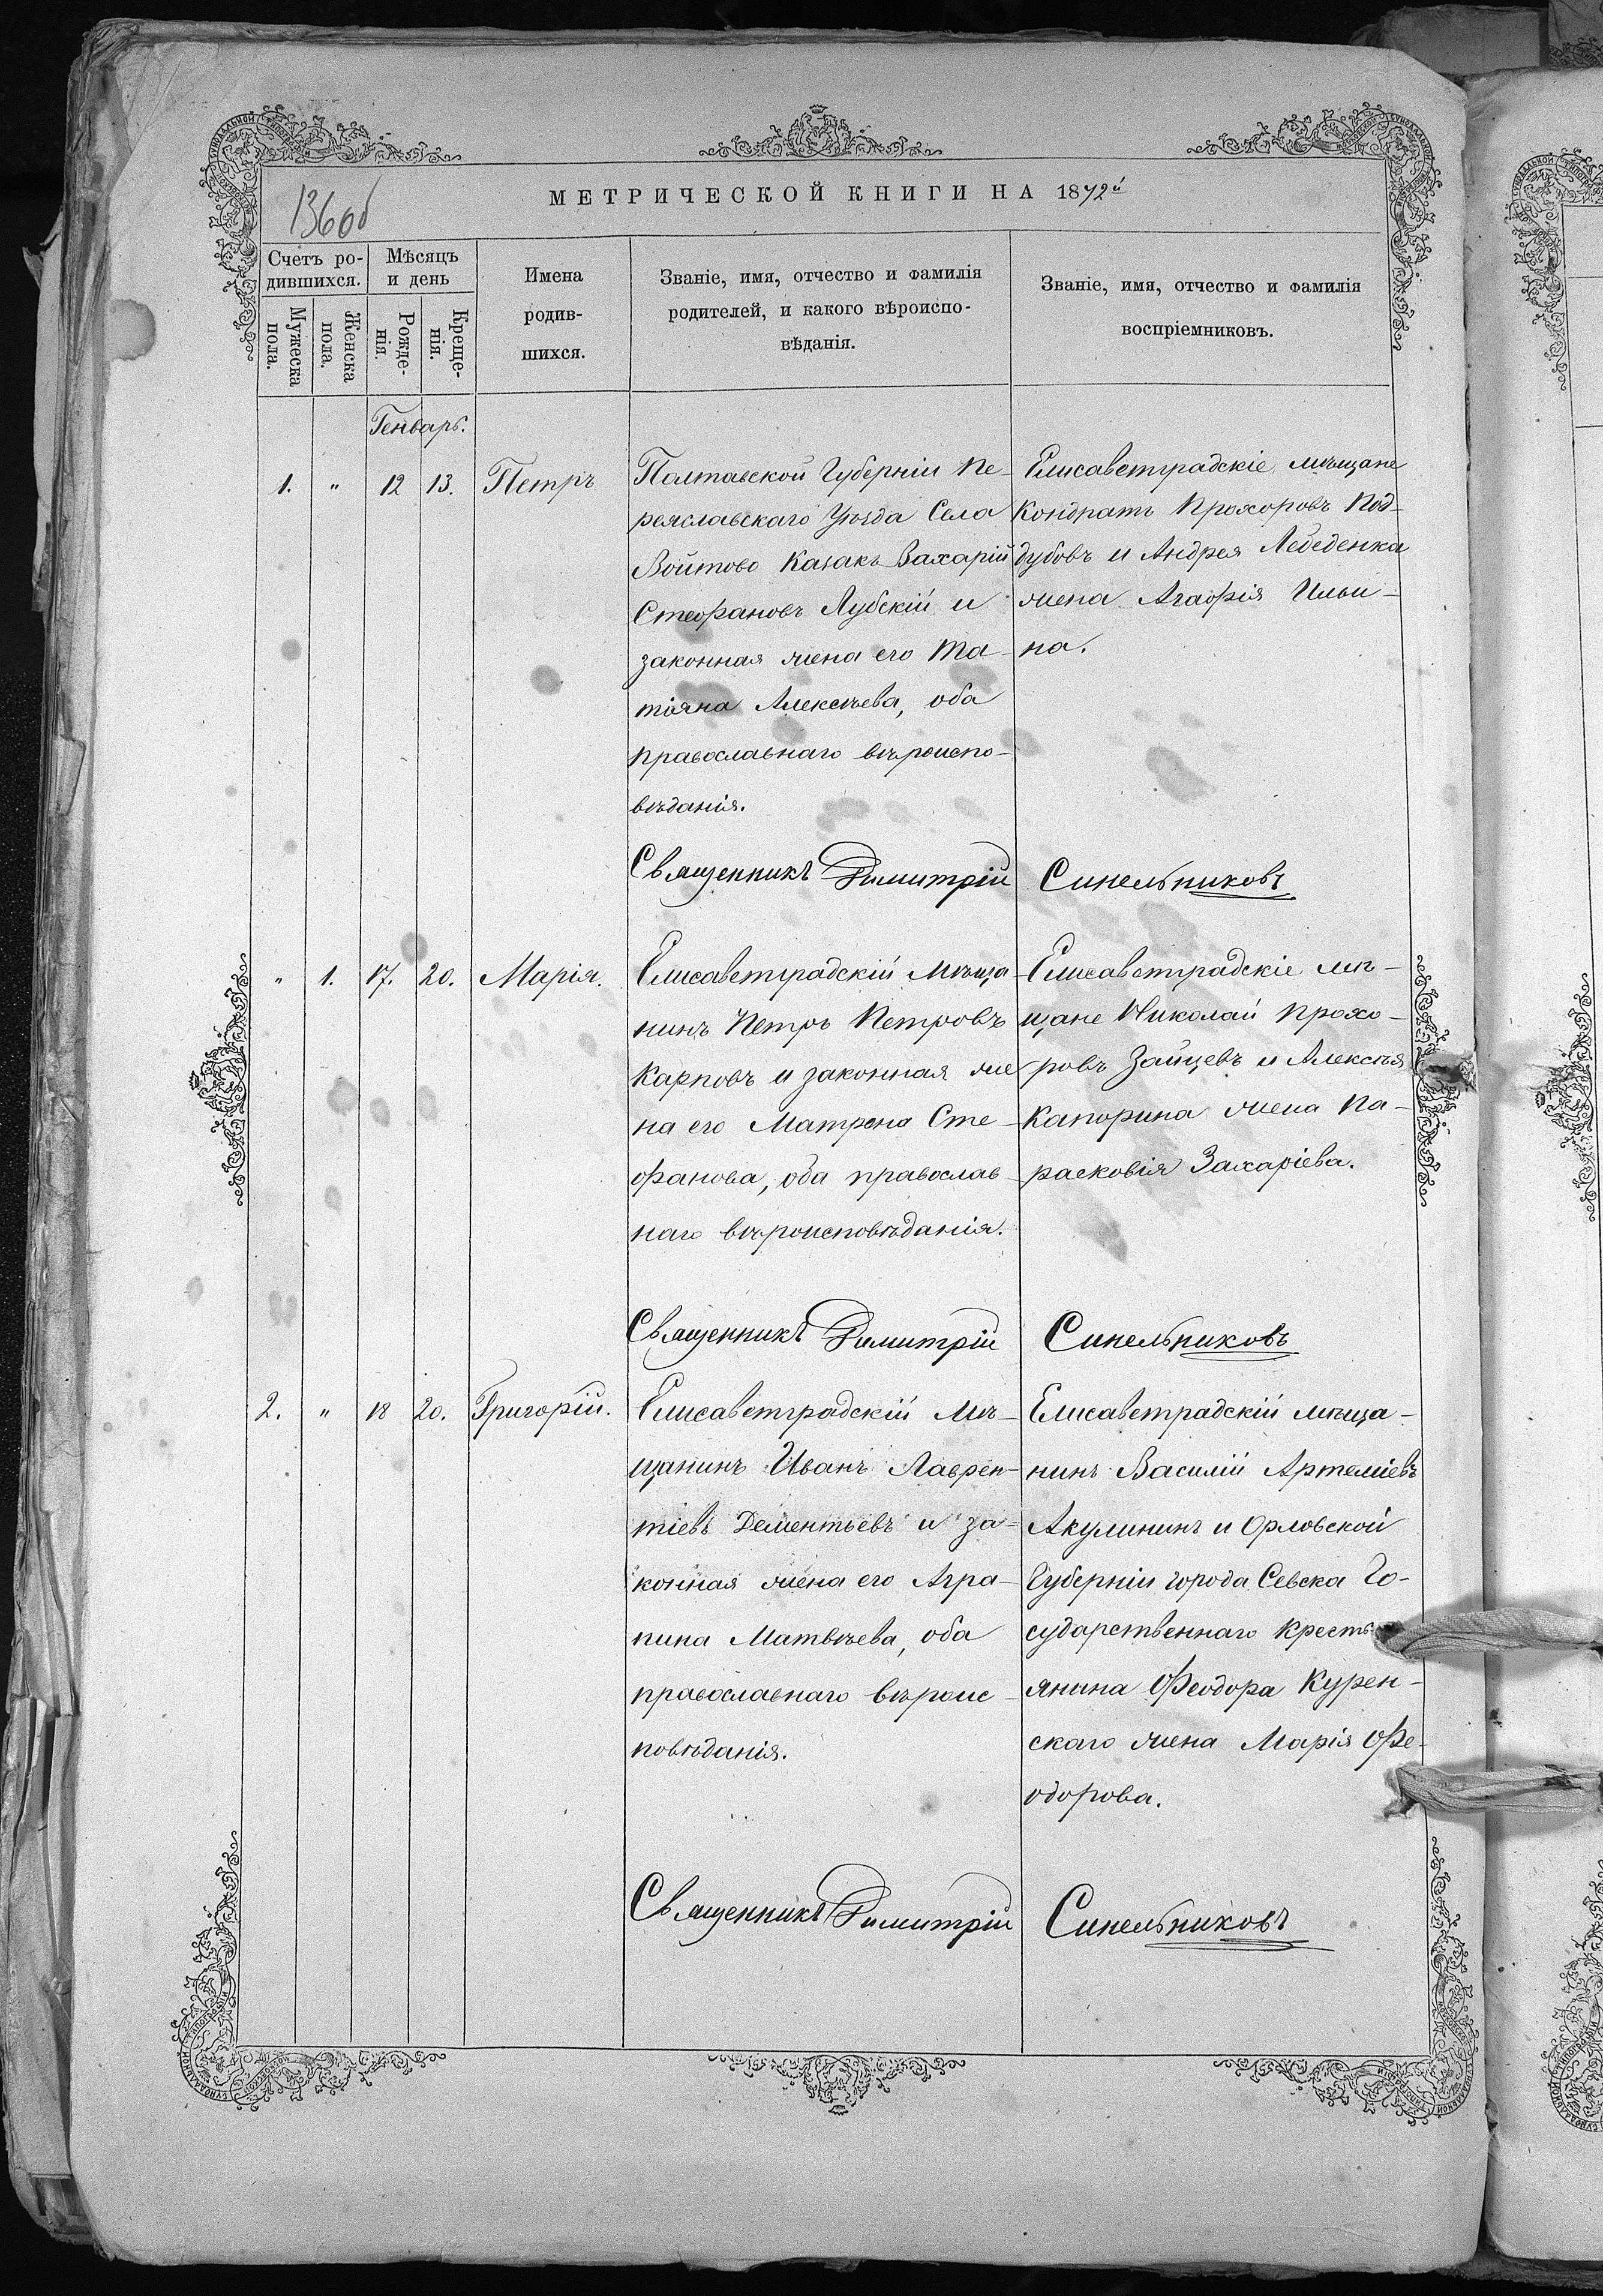 МЕТРИЧЕСКОЙ КНИГИ НА 1872й
136об
Счетъ ро-
дившихся.
Мѣсяцъ
и день
Мужеска
пола.
Женска
пола.
Рожде-
нія.
Креще-
нія.
Имена
родив-
шихся.
Званіе, имя, отчество и фамилія
родителей, и какого вѣроиспо-
вѣданія.
Званіе, имя, отчество и фамилія
воспріемниковъ.
Генварь.
1. " 12 13. Петръ
Полтавской Губерніи Пе-
реяславскаго Уѣзда Села
Войтово Казакъ Захарій
Стефановъ Лубскій и
законная жена его Та-
тіяна Алексѣева, оба
православнаго вѣроиспо-
вѣданія.
Елисаветградскіе мѣщане
Кондратъ Прохоровъ Под-
дубовъ и Андрея Лебеденка
жена Агафія Ильи-
на.
Священникъ Димитрій Синельниковъ
" 1. 17. 20. Марія.
Елисаветградскій Мѣща-
нинъ Петръ Петровъ
Карповъ и законная же-
на его Матрена Сте-
фанова, оба православ-
наго вѣроисповѣданія.
Елисаветградскіе мѣ-
щане Николай Прохо-
ровъ Зайцевъ и Алексѣя
Капорина жена Па-
расковія Захаріева.
Священникъ Димитрій Синельниковъ
2. " 18 20. Григорій.
Елисаветградскій Мѣ-
щанинъ Иванъ Лаврен-
тіевъ Дементьевъ и за-
конная жена его Агра-
пина Матвѣева, оба
православнаго вѣроис-
повѣданія.
Елисаветградскій мѣща-
нинъ Василій Артеміевъ
Акулининъ и Орловской
Губерніи города Севска Го-
сударственнаго Кресть-
янина Феодора Курен-
скаго жена Марія Фе-
одорова.
Священникъ Димитрій Синельниковъ